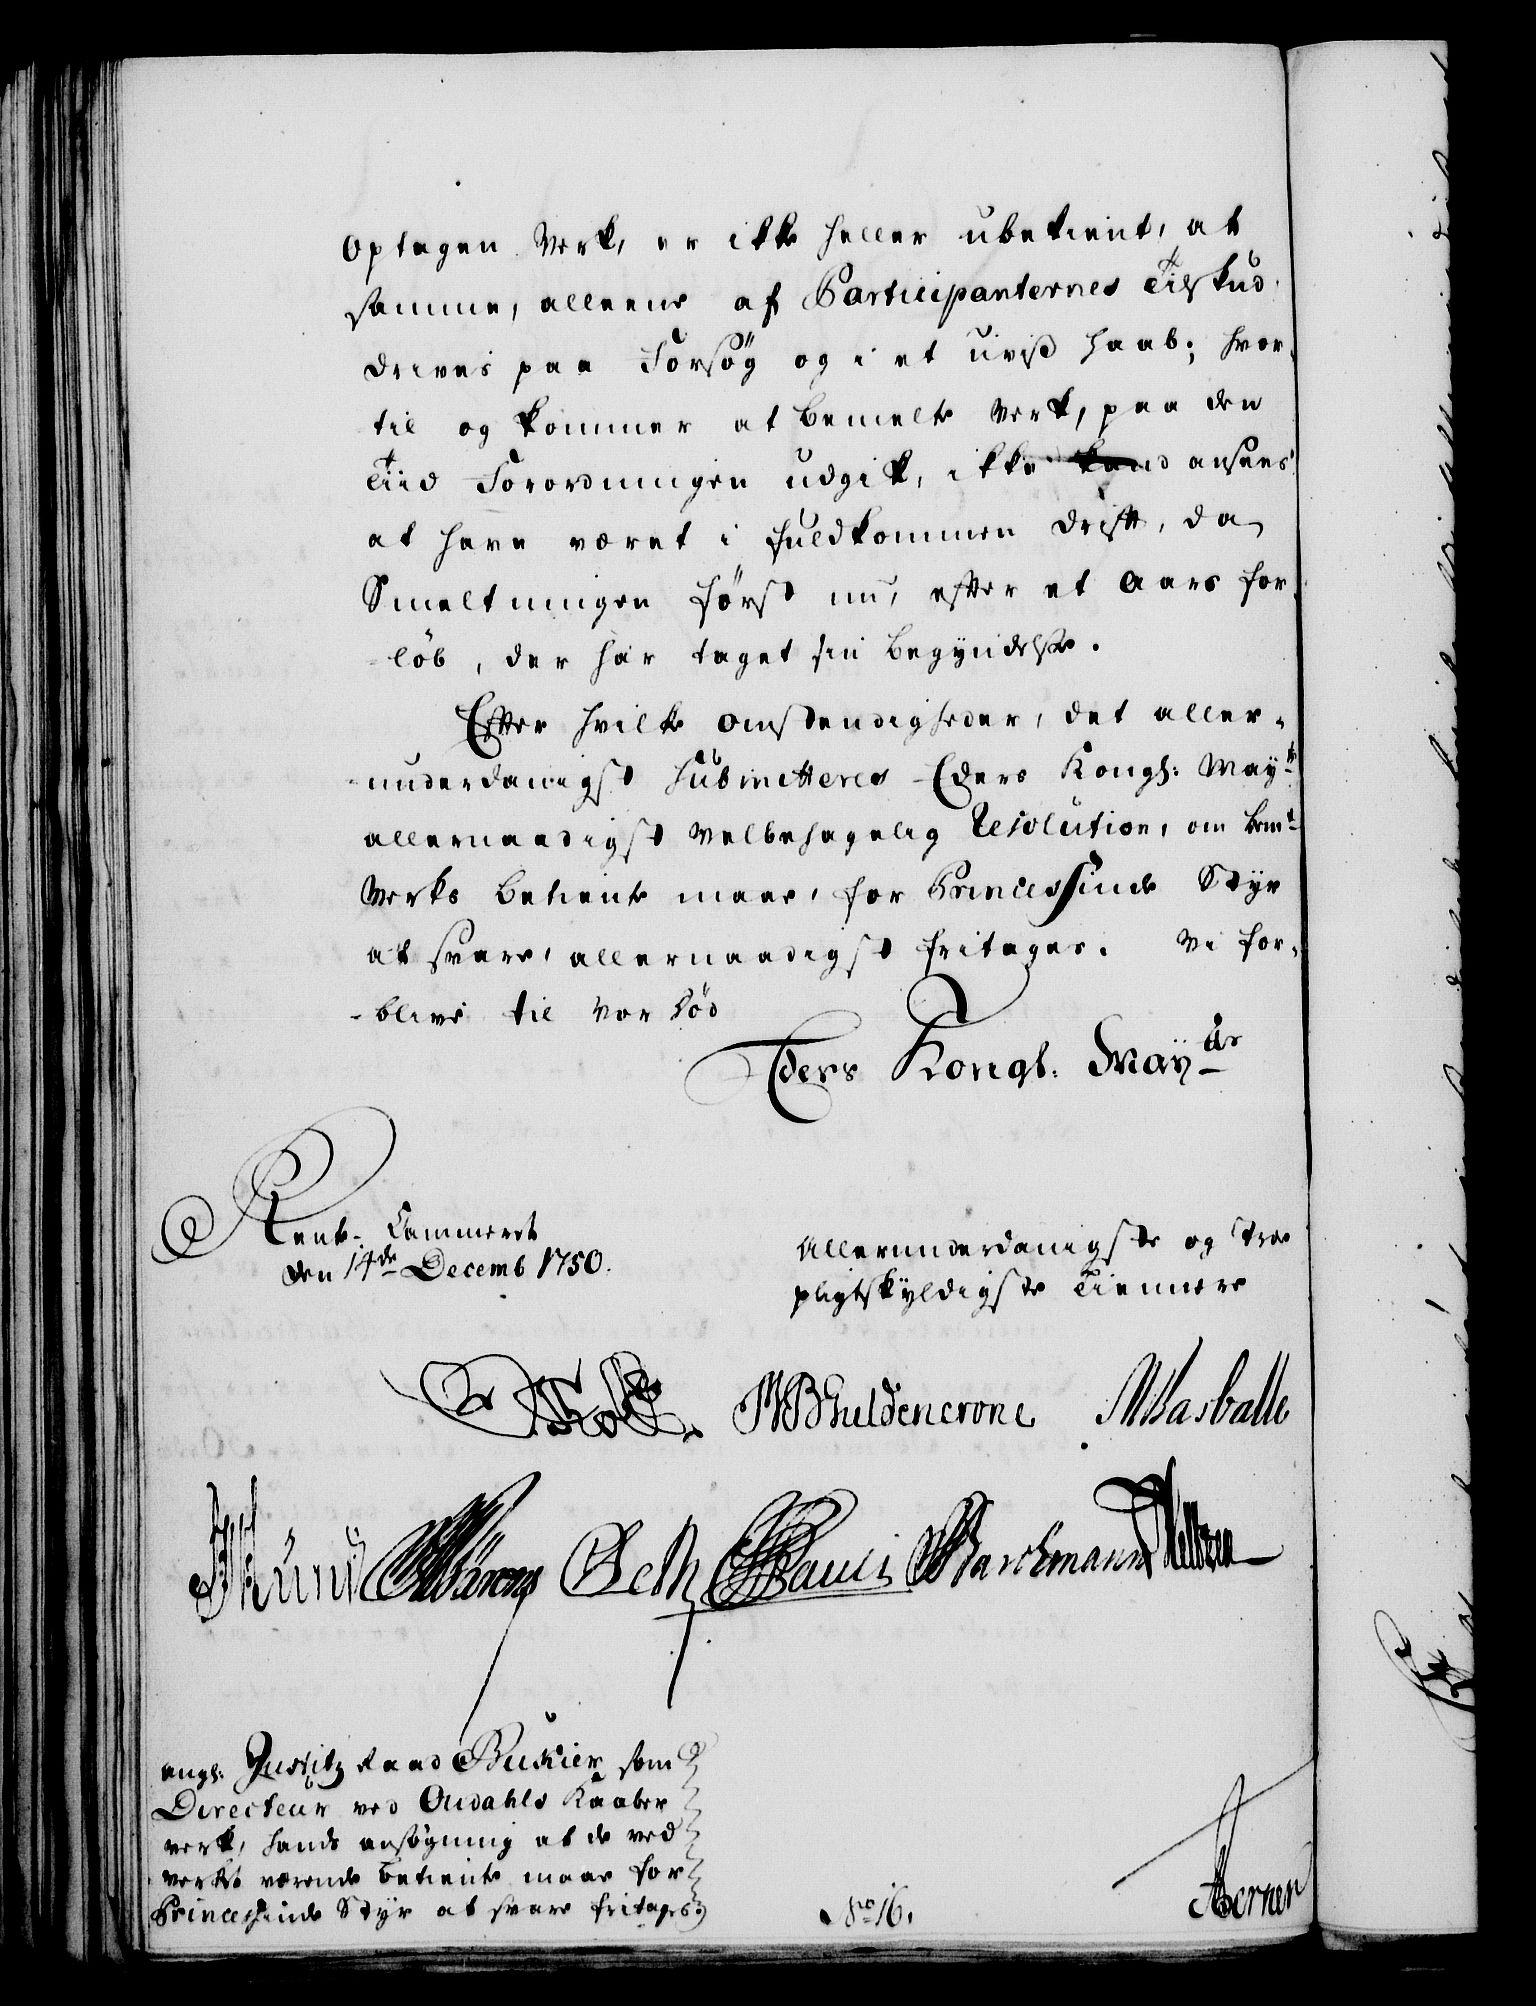 Optagen Verk, er ikke heller ubekient, at
samme, alleene af Participanternes Tilskud
drives paa Forsøg og i et uviss Haab; hvor-
til og kommer at bemelte Verk, paa den
Tiid Forordningen udgik, ikke kand ansees
at have været i fuldkommen Drift, da
Smeltningen først nu, efter et Aars for-
løb, der har taget sin Begyndelse.
Efter hvilke Omstendigheder, det aller-
underdanigst submitteres Eders Kongl: May:ts
allernaadigst Velbehagelig Resolution, om bem:te
Verks Betiente maae, for Princessinde Styr
at svare, allernaadigst fritages. Vi for-
blive til vor Død
Eders Kongl. May:ts
Rente-Cammeret
den 14de Decemb 1750.
Allerunderdanigste og Troe
pligtskyldigste Tiennere
WBGuldencrone
Seth
Pauli
angl: Justitz Raad Buskier, som
Directeur ved Oudahls Kaaber
verk, hands ansøgning at de ved
verket værende Betiente maae for
Princessinde Styr at svare fritages,
No 16.